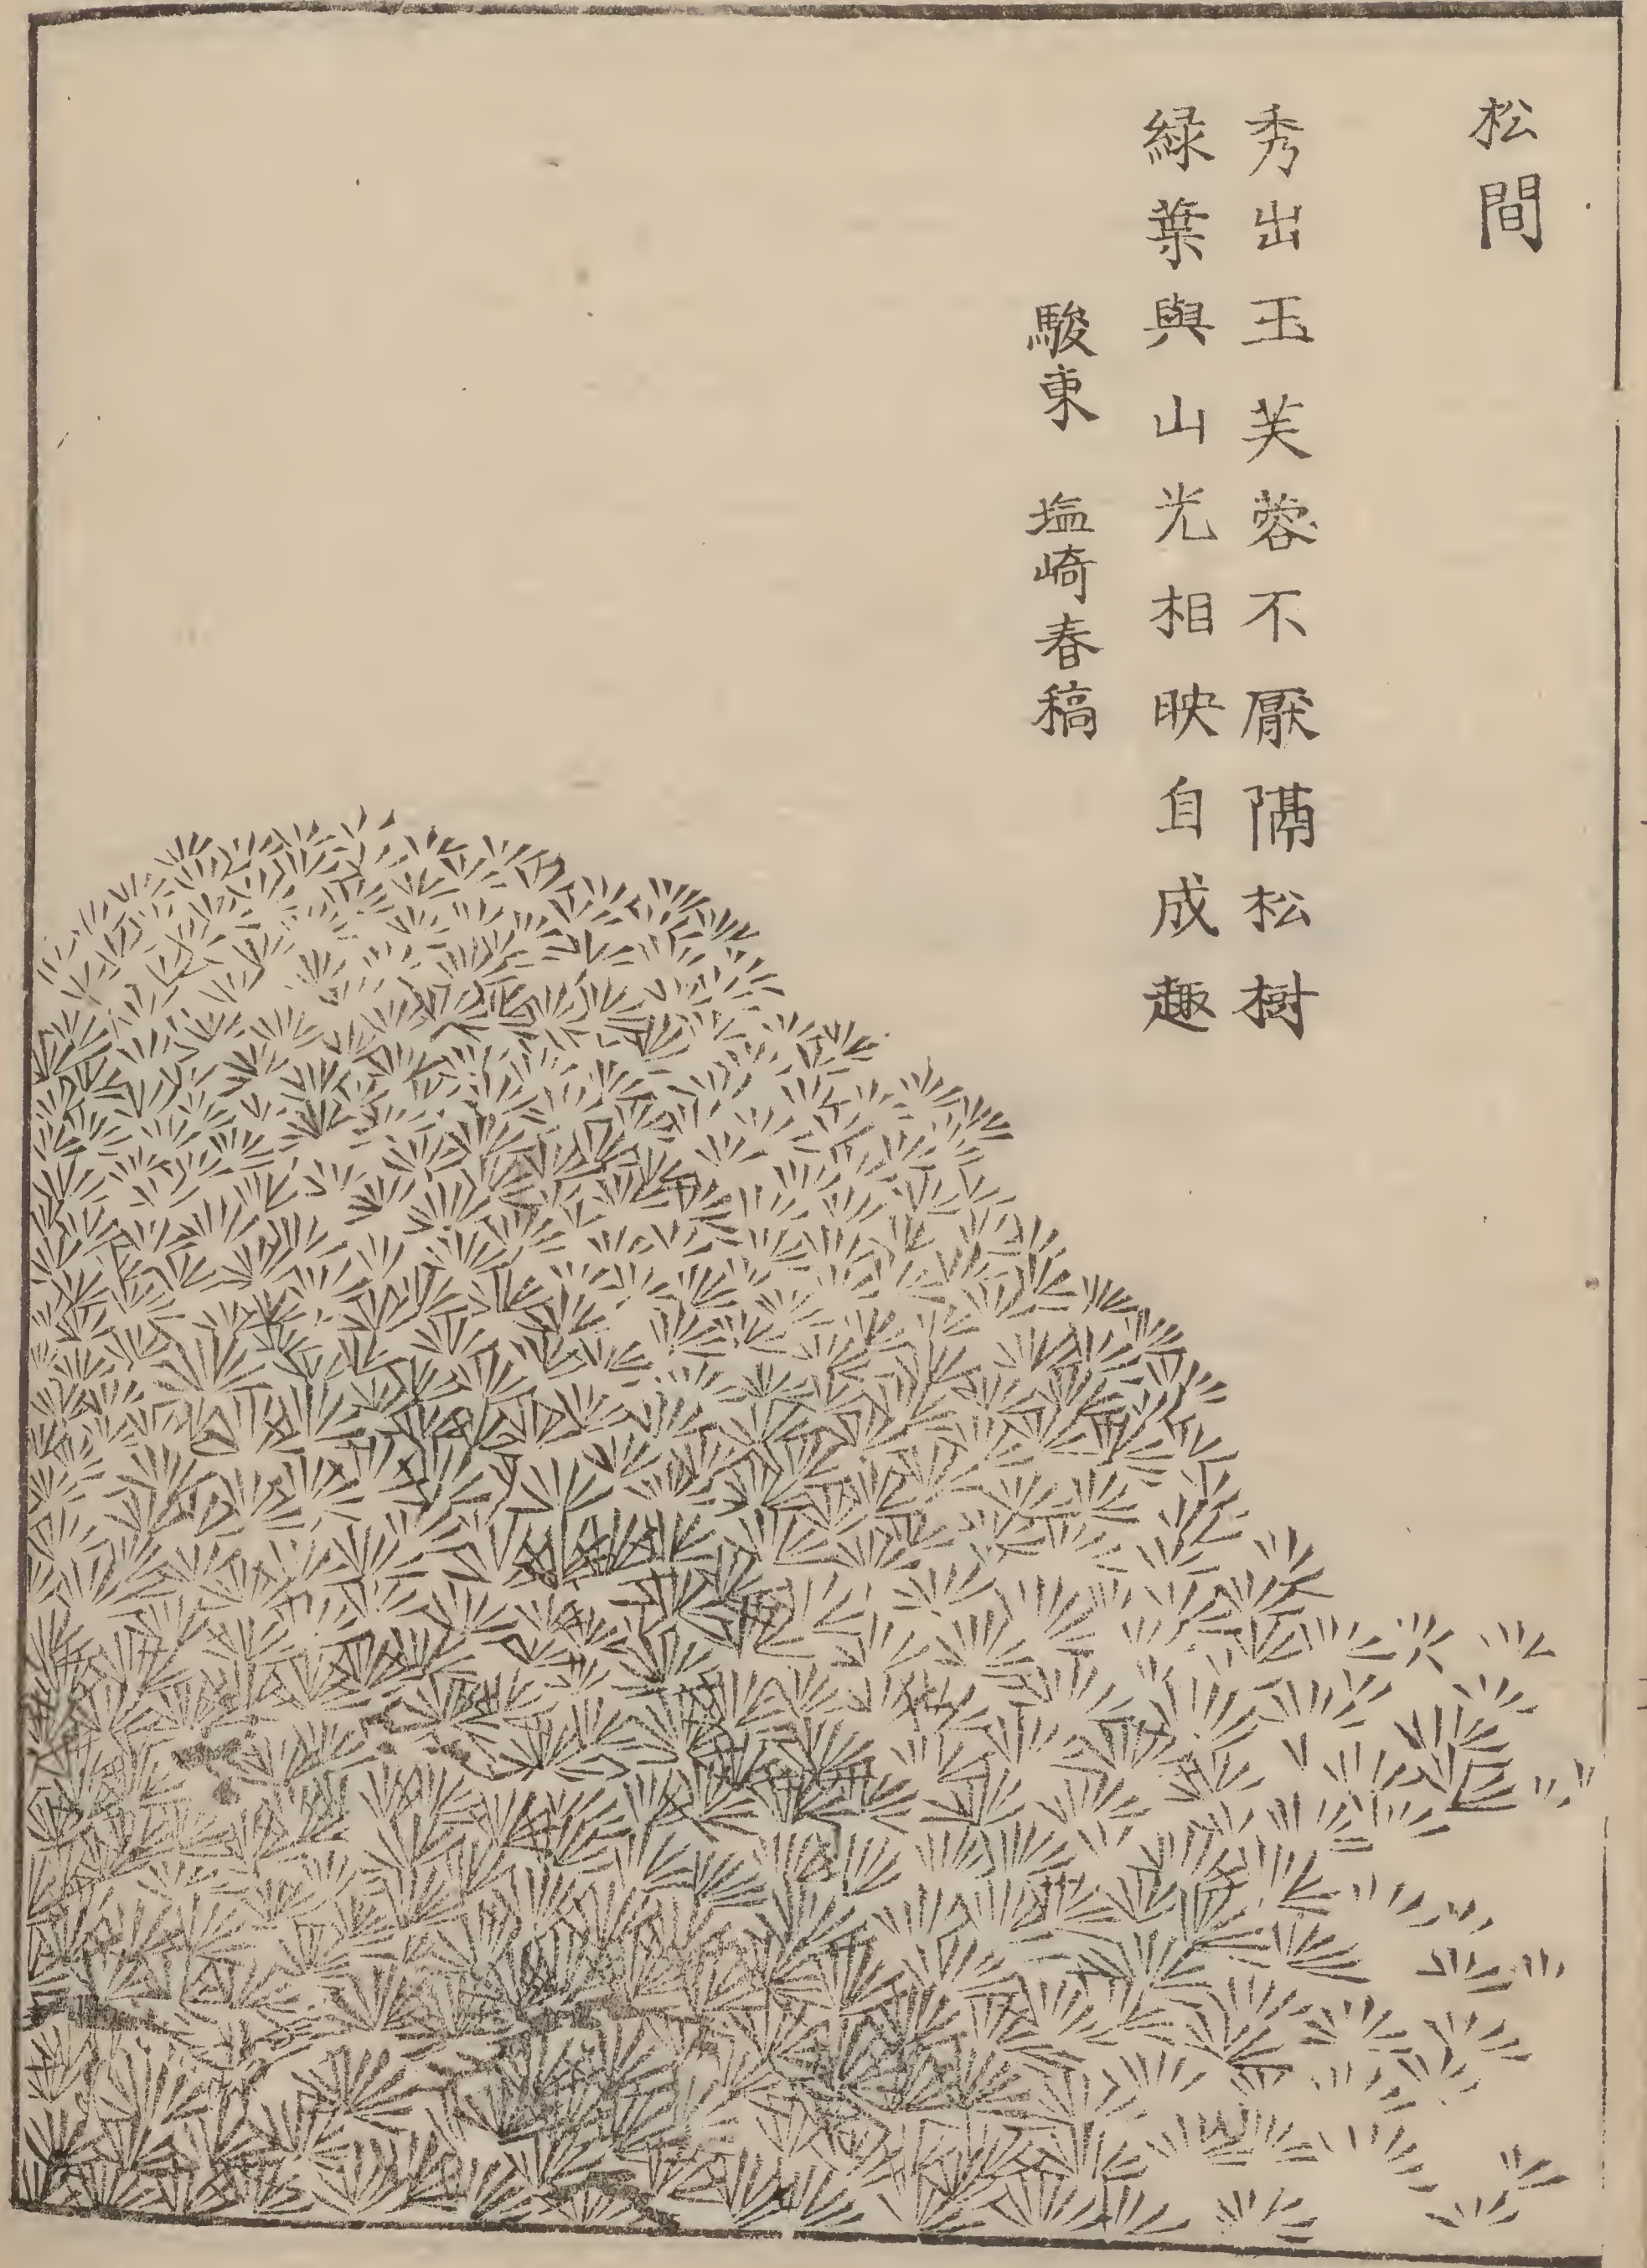 松間
秀出玉芙蓉不厭隔松樹
緑葉與山光相映自成趣
駿東 塩崎春稿